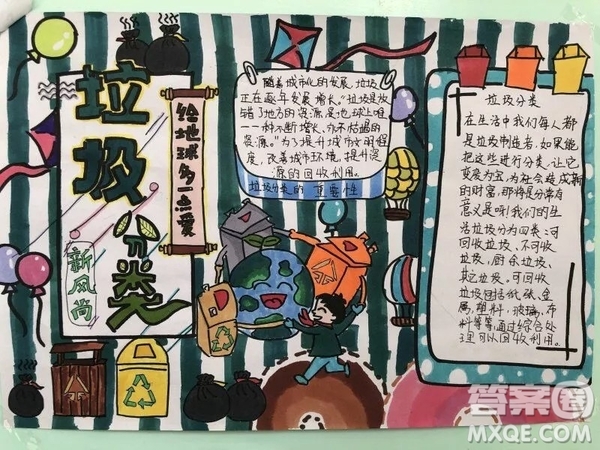 垃圾
分类
新风尚
给地球多一点爱
随着城市化的发展，垃圾
正在逐年发展增长。"垃圾是放
错了地方的资源，是地球上唯
一一种不断增长、永不枯竭的
资源。"为了提升城市文明程
度，改善城市环境，提升资
源的回收利用。
垃圾分类的重要性
垃圾分类
在生活中我们每人都
是垃圾制造者，如果能
把这些进行分类，让它
变废为宝，为社会造成新
的财富，那将是分常有
意义是呀！我们的生
活垃圾分为四类：可
回收垃圾、不可收
垃圾、厨余垃圾、
其它垃圾。可回收
垃圾包括纸张、金
属，塑料，玻璃，布
料等等，通过综合处
理可以回收利用。
答案圈
MXQE.COM